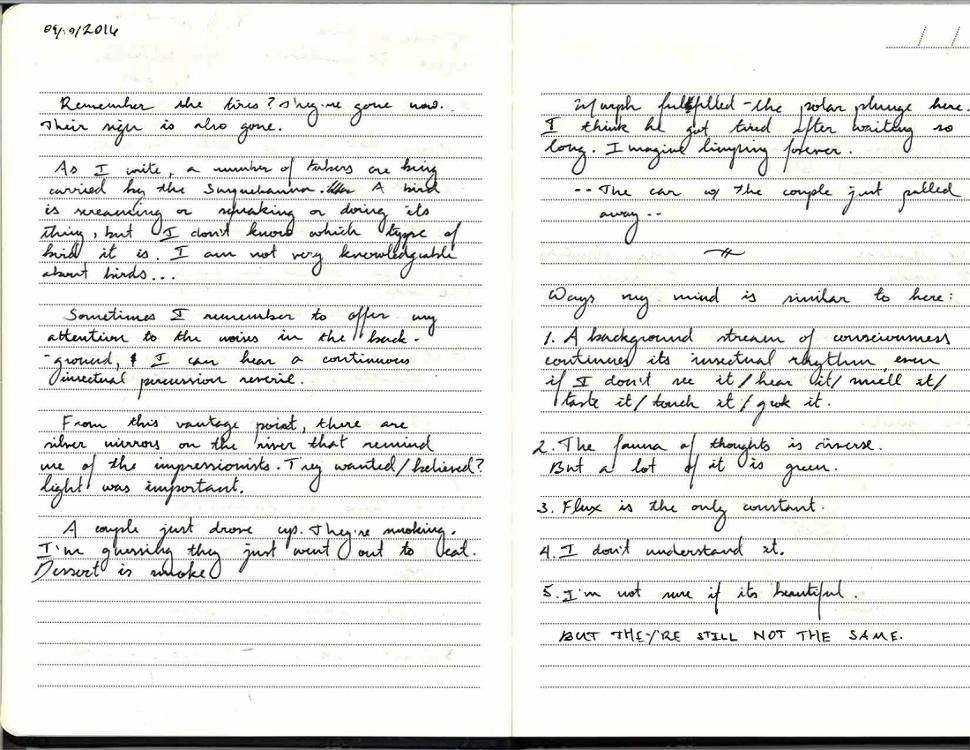 Remember the tires? They're gone now.
Their sign is also gone.
As I write, a number of tubers are being
carried by the Susquehanna. A bird
is screaming or squeaking or doing its
thing, but I don't know which type of
bird it is. I am not very knowledgable
about birds...
Sometimes I remember to offer my
attention to the noises in the back-
-ground, & I can hear a continuous
insectual percussion reverie.
From this vantage point, there are
silver mirrors on the river that remind
me of the impressionists. They wanted/believed?
light was important.
A couple just drove up. They're smoking.
I'm guessing they just went out to eat.
Dessert is smoke
fulfilled - the polar plunge here.
I think he got tired after waiting so
long. I imagine limping forever.
-- The car w/ the couple just pulled
away --
Ways my mind is similar to here:
1. A background stream of consciousness
continues its insectual rhythm even
if I don't see it/hear it/smell it/
taste it/touch it/grok it.
2. The fauna of thoughts is diverse.
But a lot of it is green.
3. Flux is the only constant.
4. I don't understand it.
5. I'm not sure if its beautiful.
BUT THEY'RE STILL NOT THE SAME.